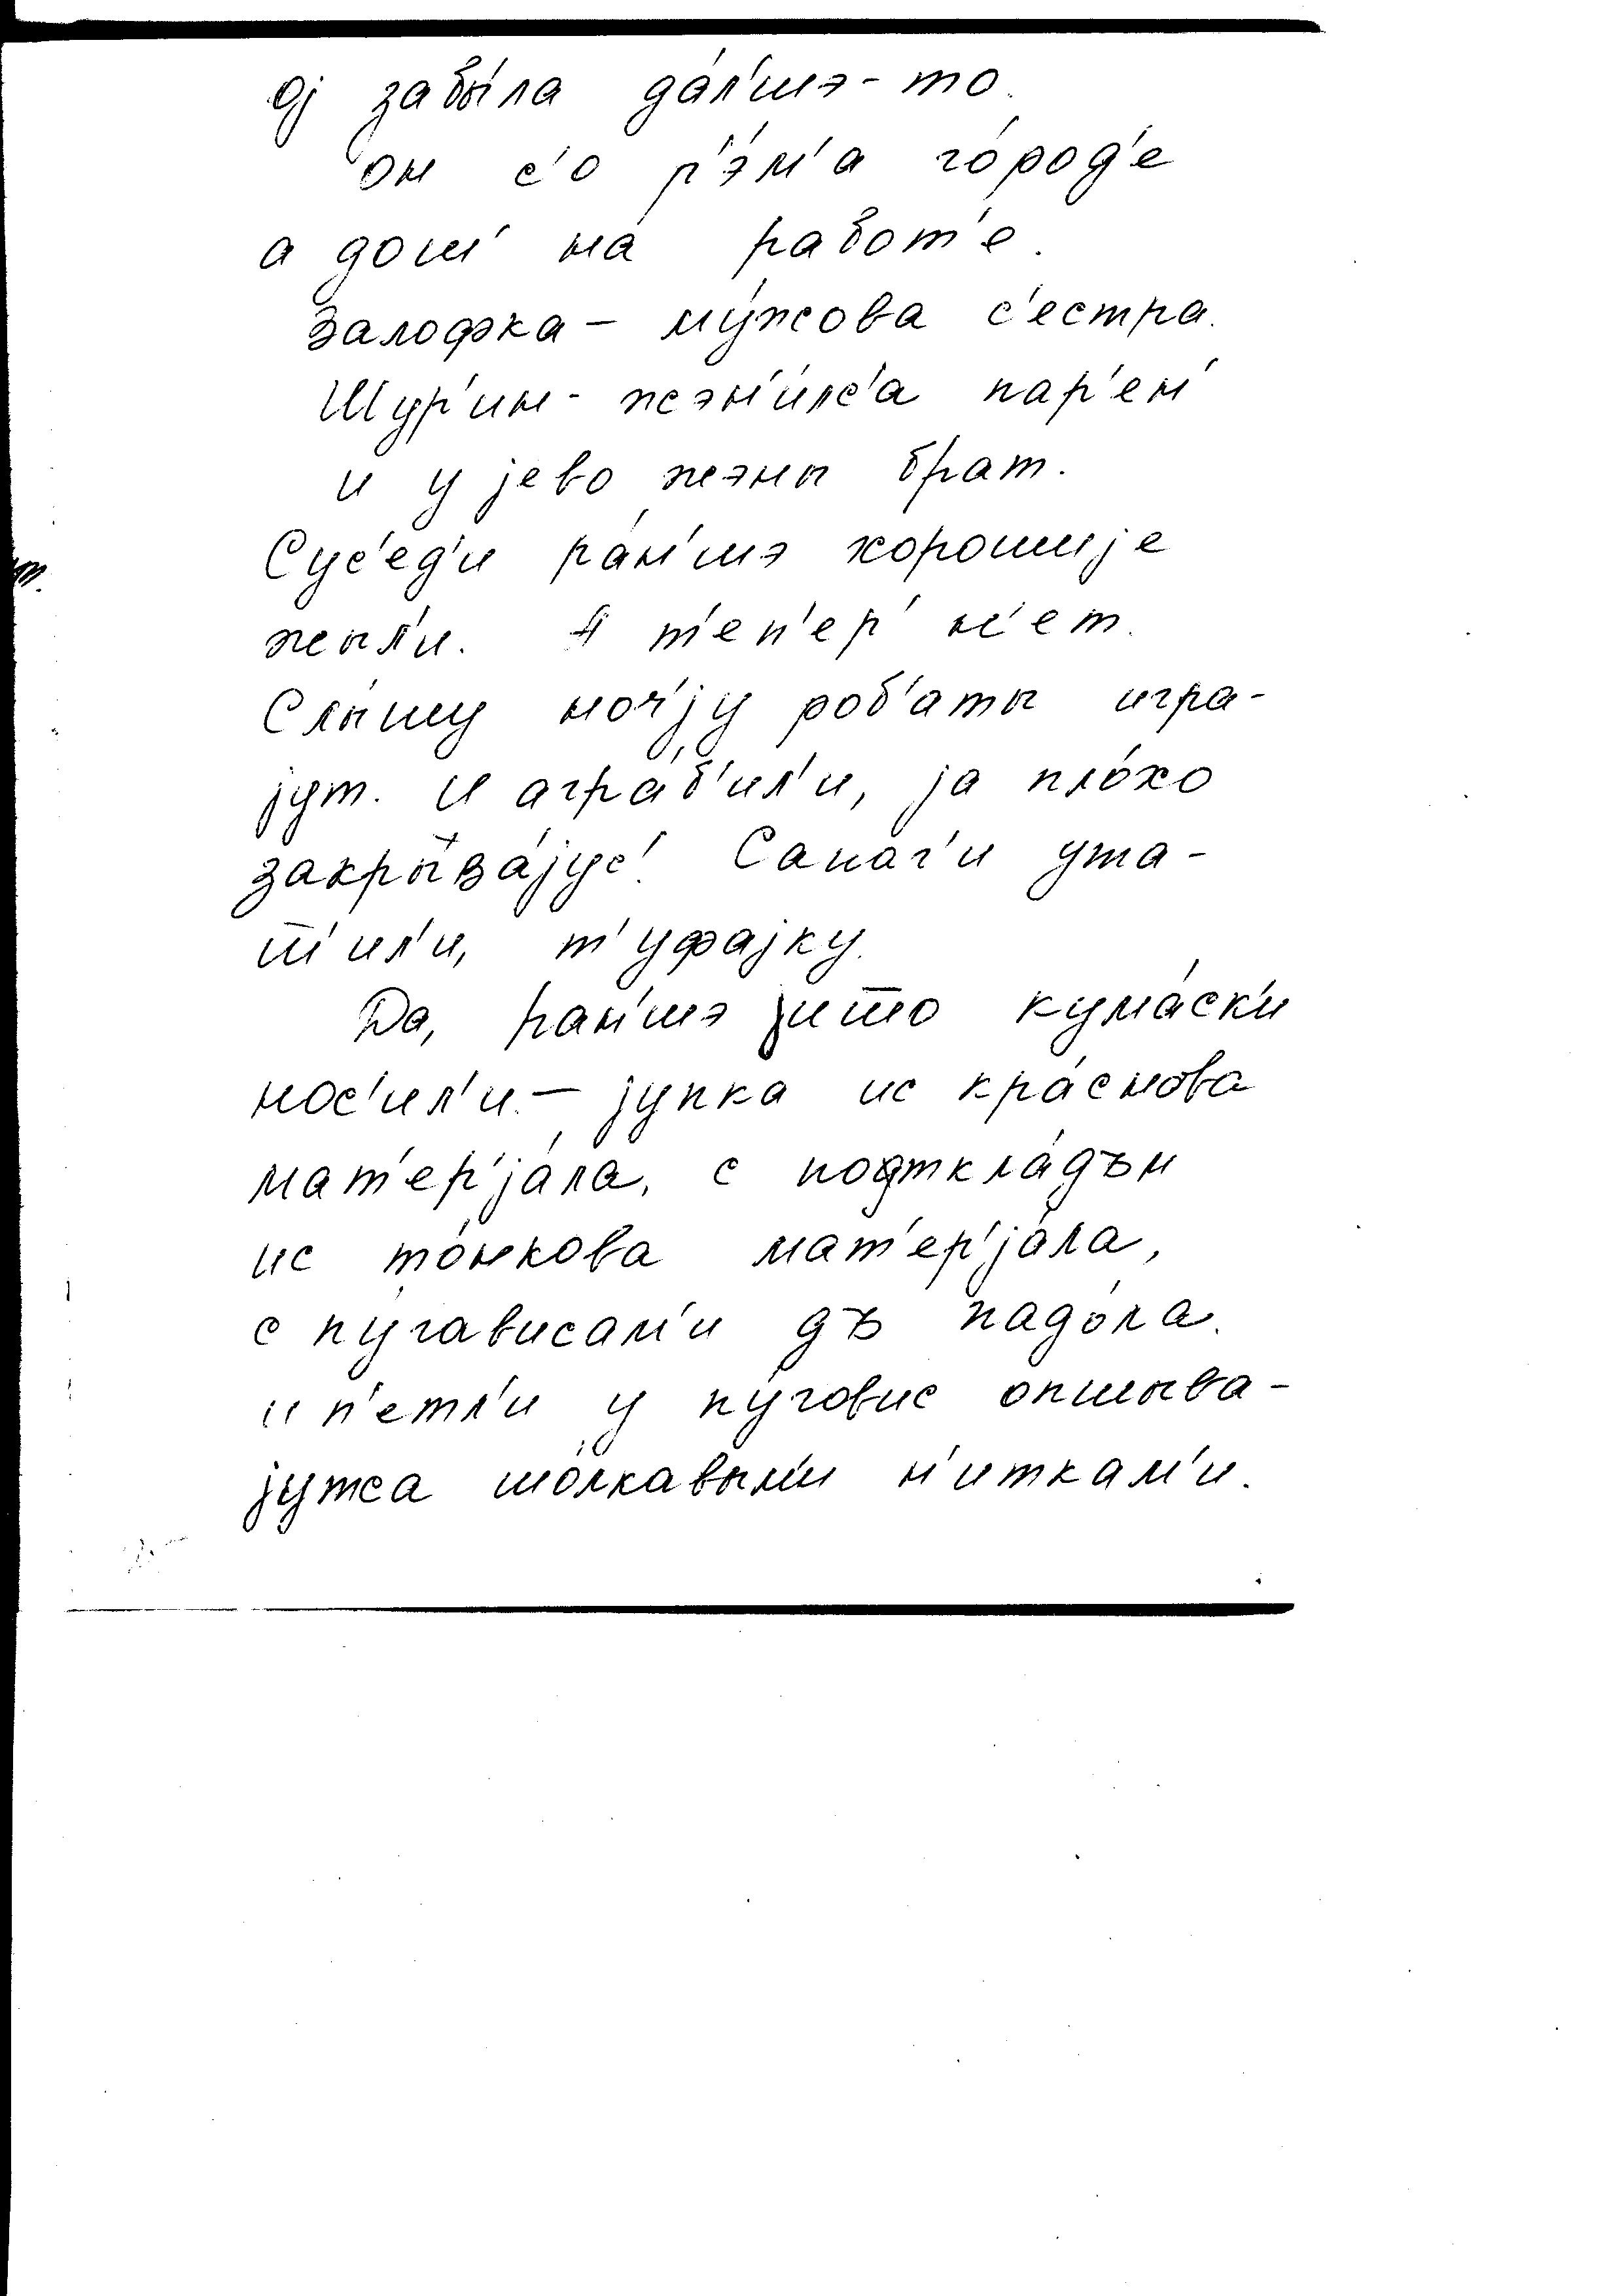 ој забы́ла да́л'шэ-то.
он с'о р'э́м'а го́род'е
а дош' на́ работ'е.
Залофка – му́жова с'естра.
Шур'ин - жэн'и́лс'а пар'ен'
и у јево жэны брат.
Сус'ед'и ра́н'шэ хорошије
жыл'и. А т'еп'ер' н'ет.
Слы́шу ноч'ју роб'аты игра-
јут. И агра́б'ил'и, ја пло́хо
закрыва́јус'. Сапаг'и ута-
ш'ил'и, т'уфајку.
Да, ран'шэ што кума́ск'и
нос'ил'и – јупка ис кра́снова
мат'ер'ја́ла, с подткла́дъм
ис то́нкова мат'ер'ја́ла,
с пу́гависам'и дъ падо́ла.
и п'етл'и у пу́говис опшыва-
јутса шо́лкавым'и н'иткам'и.